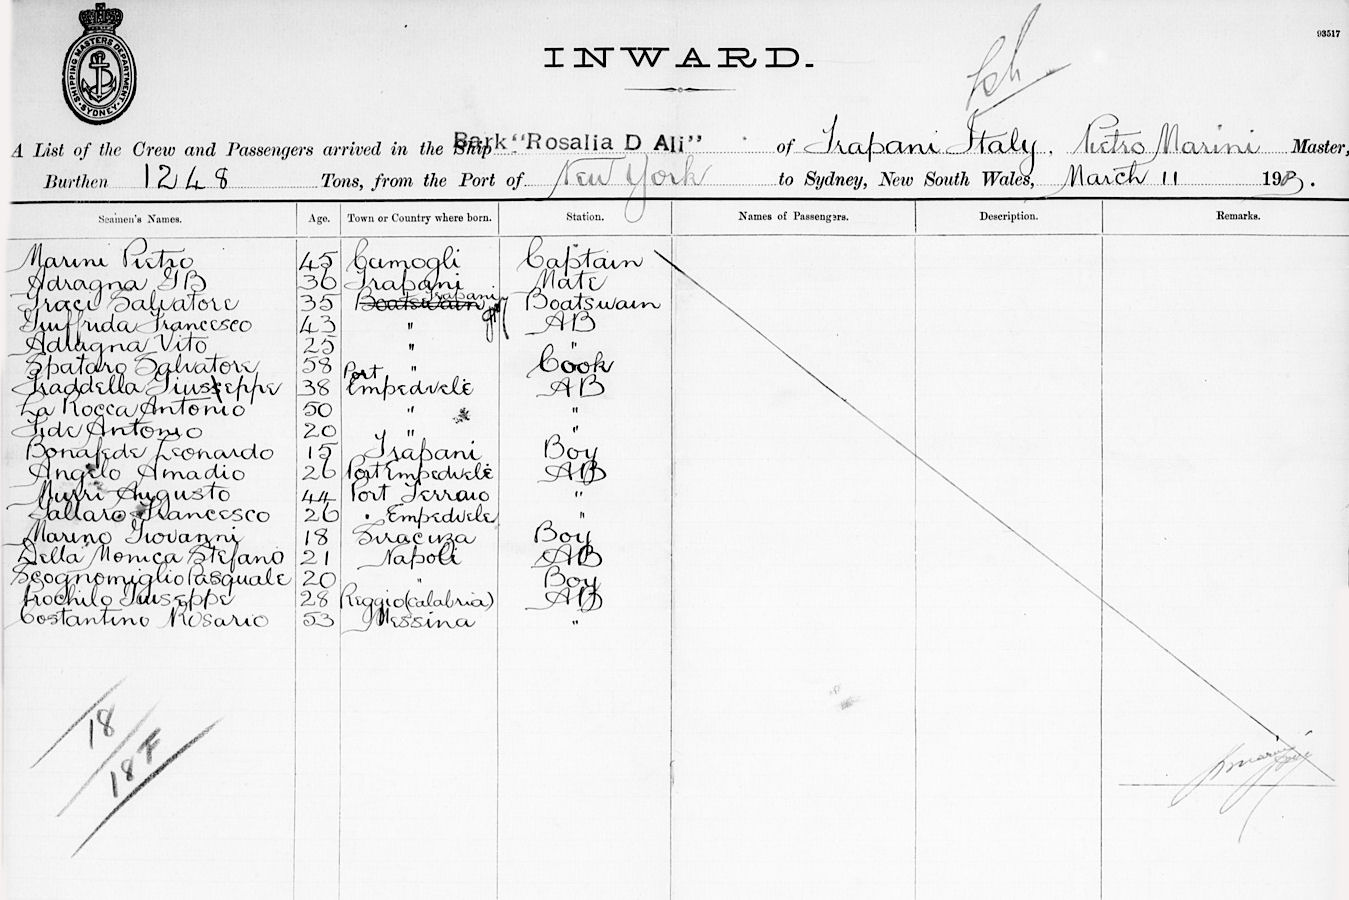 SHIPPING MASTERS DEPARTMENT. SYDNEY.
93517
INWARD.
A List of the Crew and Passengers arrived in the Ship Bark "Rosalia D Ali" of Trapani Italy, Pietro Marini Master,
Burthen 1248 Tons, from the Port of New York to Sydney, New South Wales, March 11 19
Seamen's Names. Age. Town or Country where born. Station. Names of Passengers. Description. Remarks.
Marini Pietro 45 Camogli Captain
Adragna GB 36 Trapani Mate
Traci Salvatore 35 Boatswain Trapani Boatswain
Giuffrida Francesco 43 " AB
Adragna Vito 25 " "
Spataro Salvatore 58 " Cook
Fraddella Giuseppe 38 Port Empedvele AB
La Rocca Antonio 50 " "
Fide Antonio 20 " "
Bonafede Leonardo 15 Trapani Boy
Angelo Amadio 26 Port Empedvele AB
Murri Augusto 44 Port Ferraio "
Gallaro Francesco 26 " Empedvele "
Marino Giovanni 18 Siracuza Boy
Della Monica Stefano 21 Napoli AB
Scognomiglio Pasquale 20 " Boy
Trochilo Giuseppe 28 Reggio (Calabria) AB
Costantino Rosario 53 Messina "
18
18 F